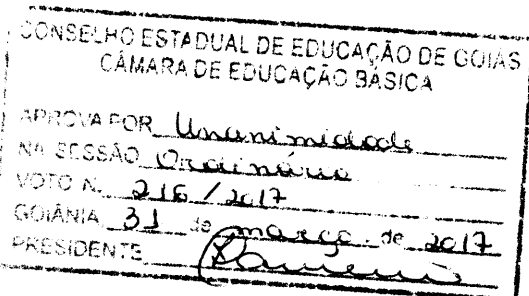 CONSELHO ESTADUAL DE EDUCAÇÃO DE GOIÁS
CÂMARA DE EDUCAÇÃO BÁSICA
APROVA POR Unanimidade
NA SESSÃO Ordinária
VOTO N. 216 / 2017
GOIÂNIA 31 de março de 2017
PRESIDENTE